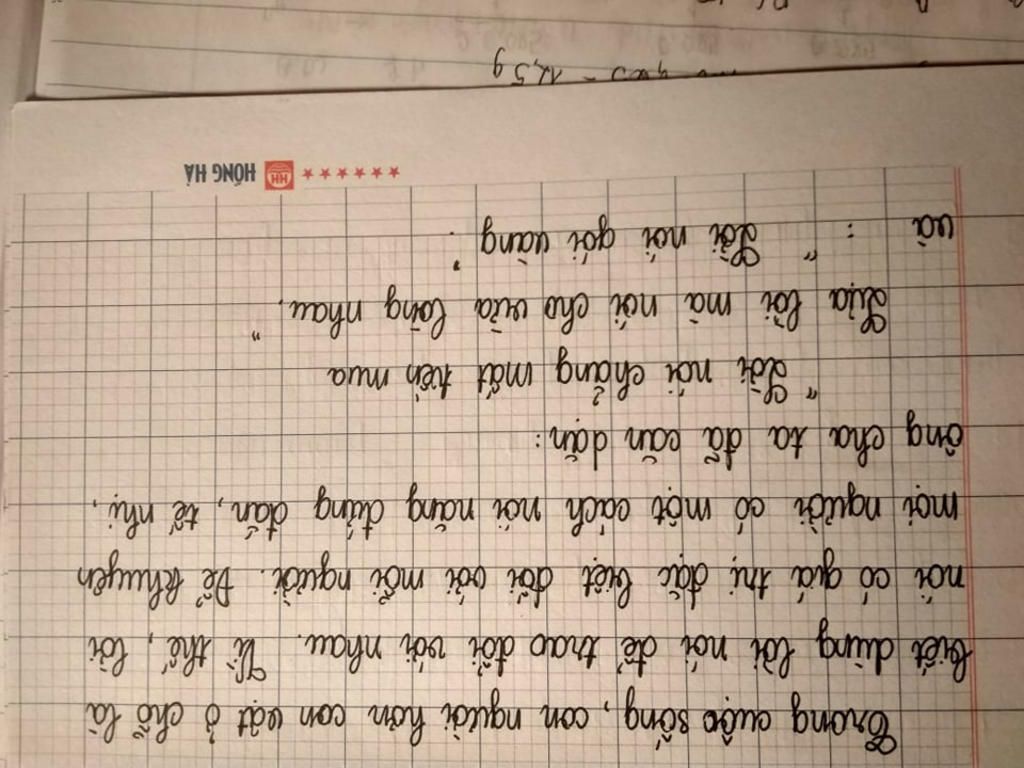 Trong cuộc sống, con người hơn con vật ở chỗ là
biết dùng lời nói để trao đổi với nhau. Vì thế, lời
nói có giá trị đặc biệt đối với mỗi người. Để khuyên
mọi người có một cách nói năng đúng đắn, tế nhị,
ông cha ta đã căn dặn:
"Lời nói chẳng mất tiền mua
Lựa lời mà nói cho vừa lòng nhau."
và : "Lời nói gói vàng".
HỒNG HÀ
HH
12,5 g